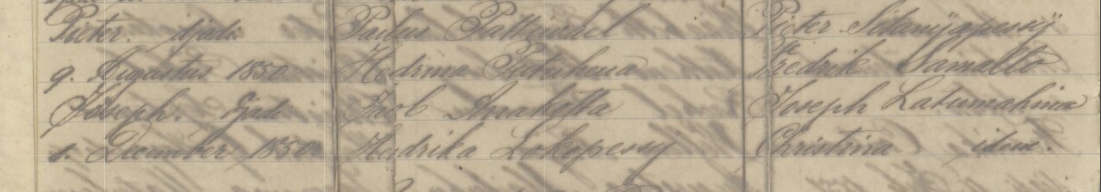 Pieter. djadi Paulus Pattiwael Pieter
9. Augustus 1850 Hedrina Patuhena Fredrik Samallo
Joseph. djadi Jacob Anakotta Joseph Latumahina
1. December 1850 Hendrika Lokopessy Christina idem.